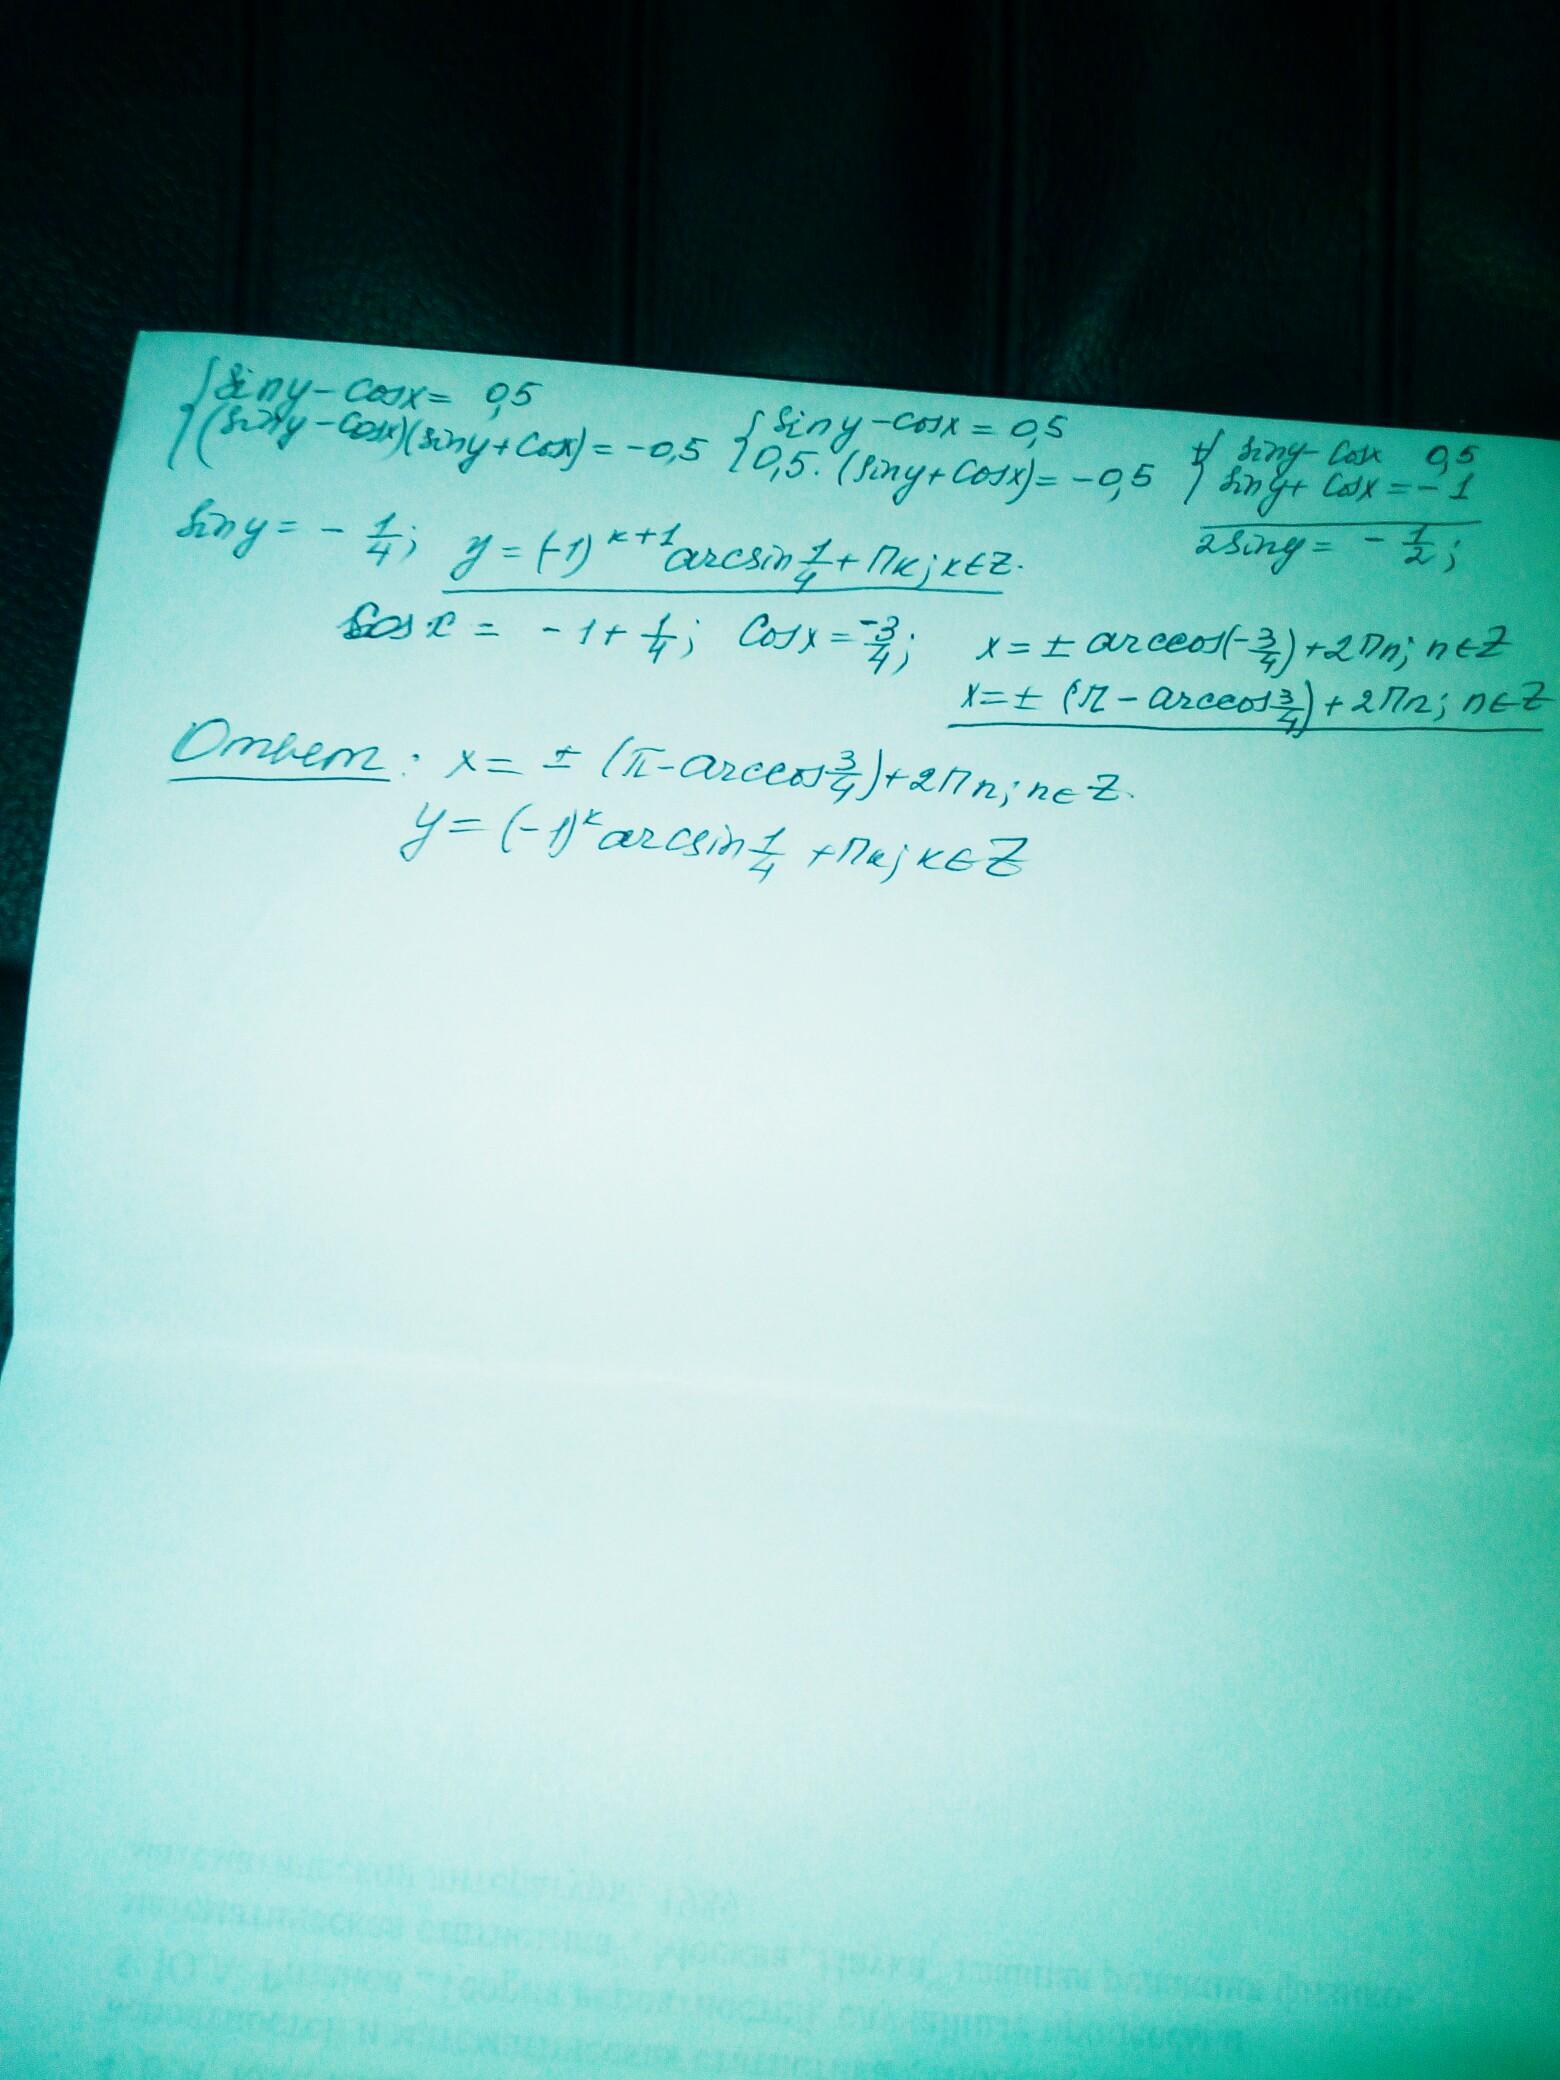 { siny - cosx = 0,5
(siny - cosx)(siny + cosx) = -0,5
{ siny - cosx = 0,5
0,5 · (siny + cosx) = -0,5
+{ siny - cosx 0,5
siny + cosx = -1
2siny = - 1/2;
siny = - 1/4; y = (-1)^(к+1) arcsin 1/4 + Пк; к ∈ Z.
cosx = -1 + 1/4; Cosx = -3/4; x = ± arccos(-3/4) + 2Пn; n ∈ Z
x = ± (π - arccos 3/4) + 2Пn; n ∈ Z
Ответ: x = ± (π - arccos 3/4) + 2Пn; n ∈ Z.
y = (-1)^к arcsin 1/4 + Пк; к ∈ Z